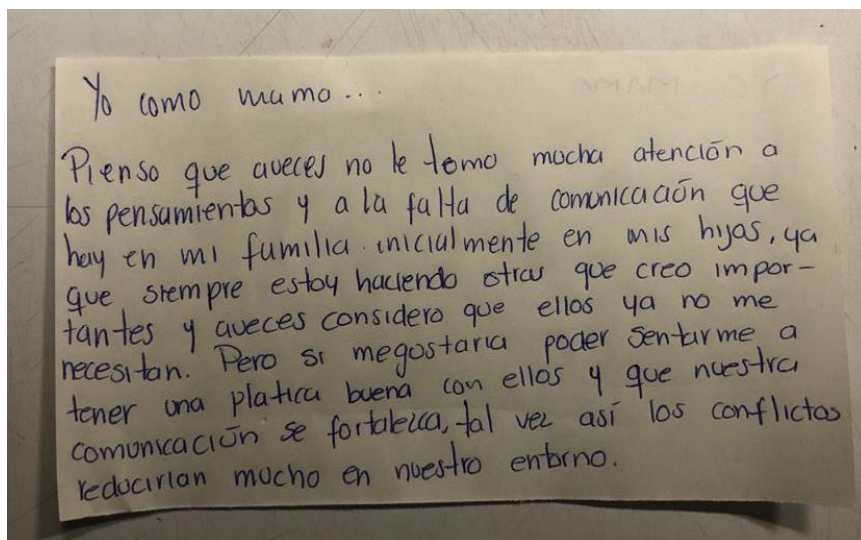 Yo como mama...
Pienso que aveces no le tomo mucha atención a
los pensamientos y a la falta de comunicación que
hay en mi familia inicialmente en mis hijos, ya
que siempre estoy haciendo otras que creo impor-
tantes y aveces considero que ellos ya no me
necesitan. Pero si megustaria poder sentarme a
tener una platica buena con ellos y que nuestra
comunicación se fortalezca, tal vez así los conflictos
reducirian mucho en nuestro entorno.